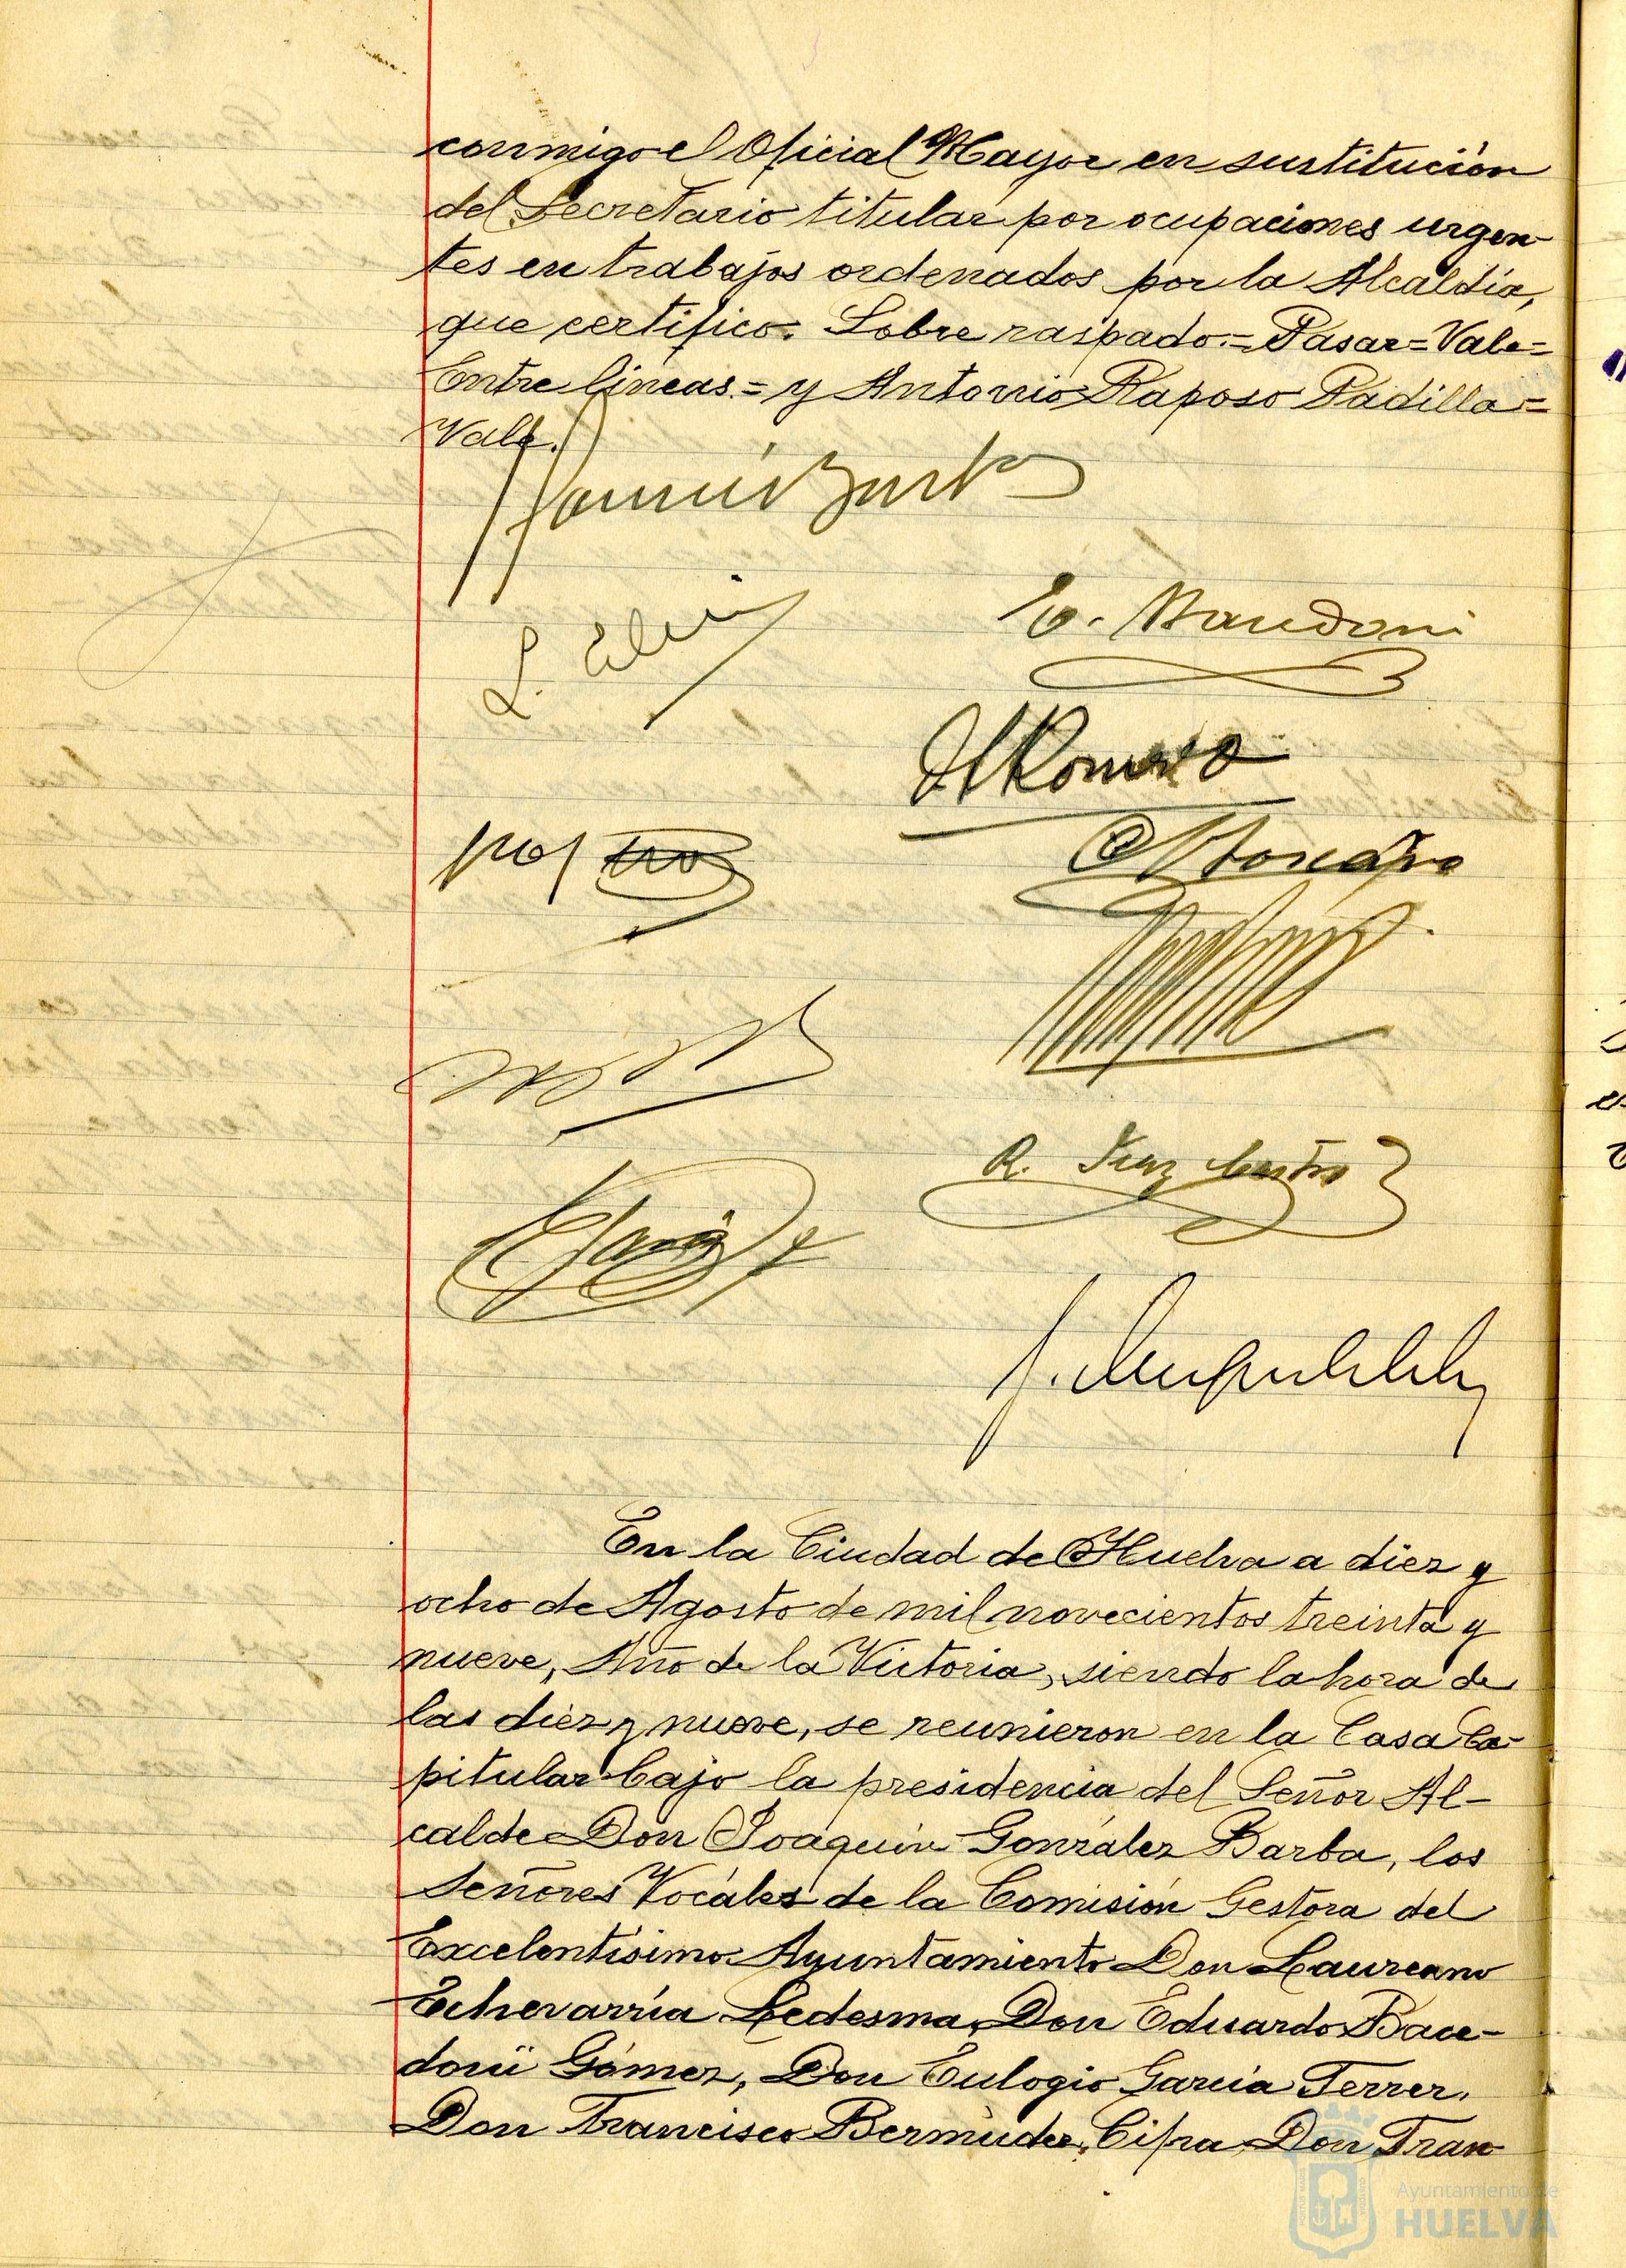 conmigo el Oficial Mayor en sustitución
del Secretario titular por ocupaciones urgen-
tes en trabajos ordenados por la Alcaldía,
que certifico. Sobre raspado.=Pasar=Vale=
Entre líneas.=y Antonio Raposo Padilla=
Vale.
E. Bacedoni
Romero
R. Díaz Castro
En la Ciudad de Huelva a diez y
ocho de Agosto de mil novecientos treinta y
nueve, Año de la Victoria, siendo la hora de
las diez y nueve, se reunieron en la Casa Ca-
pitular bajo la presidencia del Señor Al-
calde Don Joaquín González Barba, los
Señores Vocales de la Comisión Gestora del
Excelentísimo Ayuntamiento Don Laureano
Echevarría Ledesma, Don Eduardo Bace-
doni Gómez, Don Eulogio García Ferrer,
Don Francisco Bermúdez Cifra Don Fran-
Ayuntamiento de
HUELVA